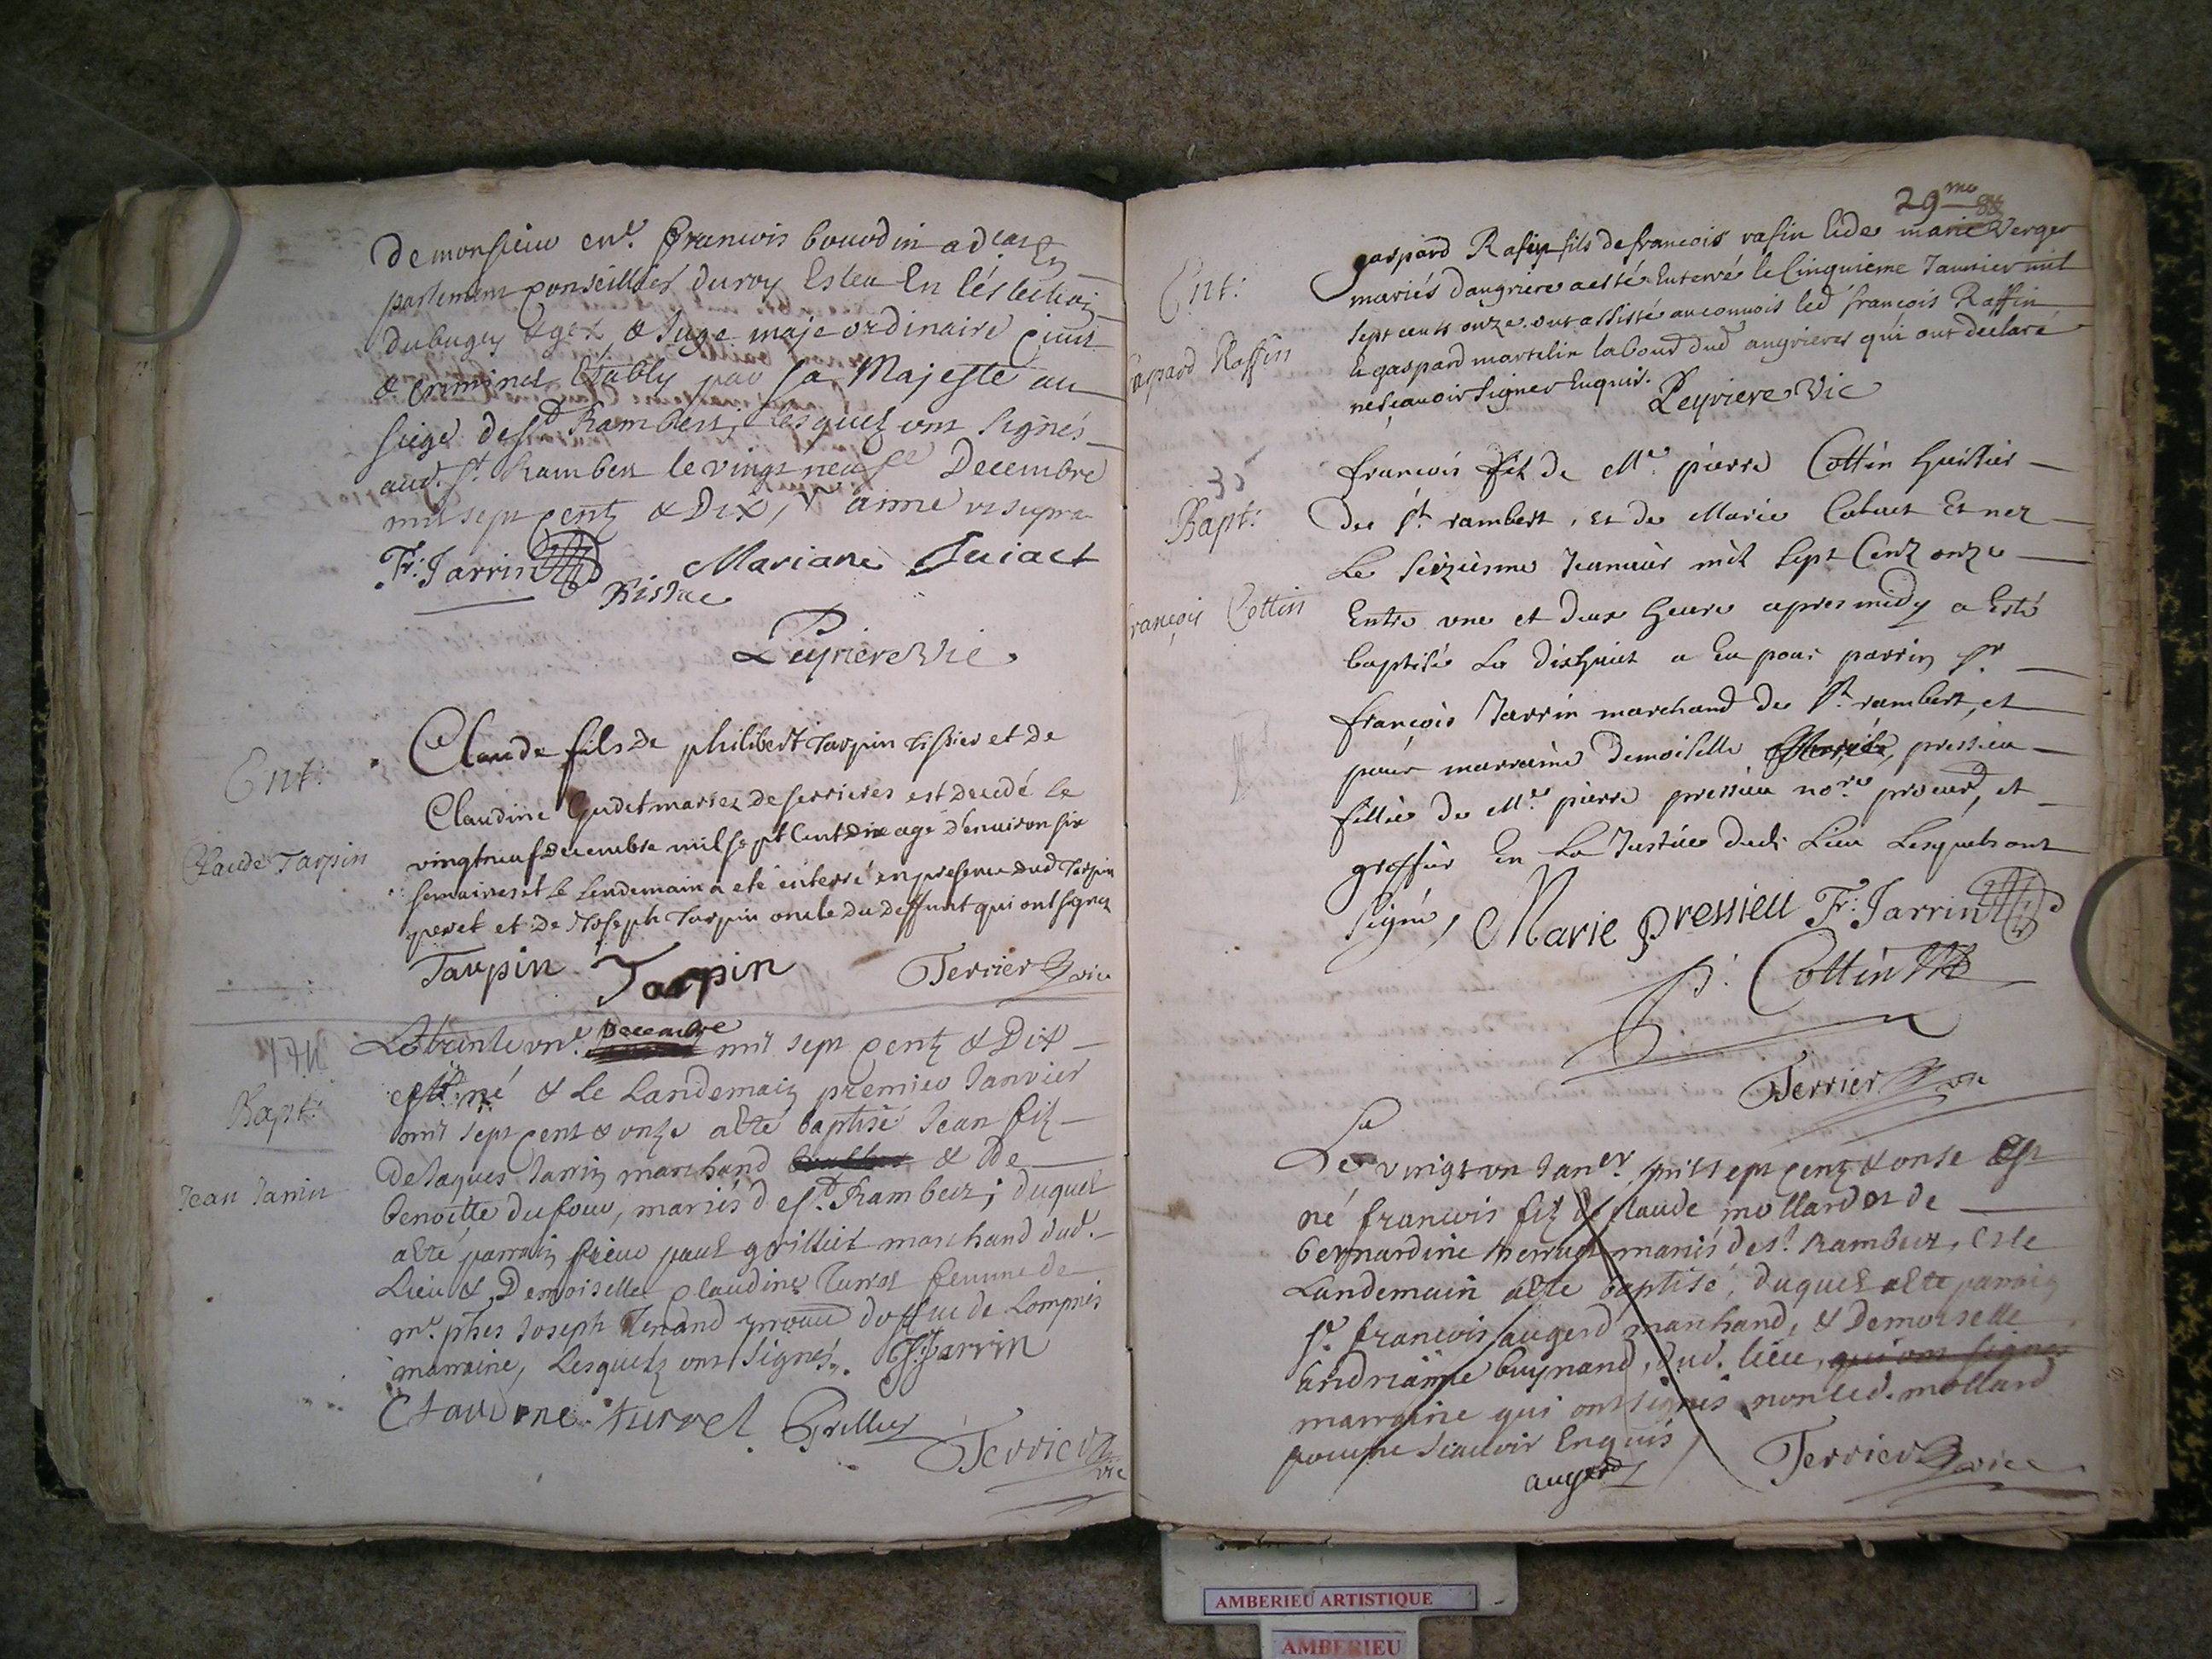 de monsieur me. francois bourdin advat. en
parlement conseillier du roy esleu en leslection
du bugey & gex, & juge maje ordinaire civil
& criminel estably par sa Majesté au
siege de st Rambert, lesquelz ont signés
aud. st Rambert le vingt neuf Decembre
mil sept centz & Dix,
Fr: Jarrin
Mariane Juiact
Leyriere Vic
Ent:
Claude Tarpin
Claude fils de philibert Tarpin tissier et de
Claudine Gudet mariez de serrieres est decedé le
vingt neuf decembre mil sept cent dix age d'environ six
semaines et le lendemain a eté enterré en presence dud Tarpin
peret et de Joseph Tarpin oncle du deffunt qui ont signez
Tarpin Tarpin Terrier vic
1711
Bapt:
Jean Jarrin
Le trente un.e Decembre mil sept centz & Dix
est né & le Landemain premier Janvier
mil sept cent & onze a été baptisé Jean filz
de Jaques Jarrin marchand & de
benoitte dufour, mariés de st. Rambert; duquel
a été parrain sieur paul grilliet marchand dud.
Lieu & Demoiselle Claudine Turrel femme de
mre. phes Joseph Tenand
marraine, Lesquelz ont signés. J. Jarrin
Claudine turrel Grilliet
Terrier vic
29me
Ent:
Gaspard Raffin
gaspard Rafin fils de francois rafin et de marie Verger
mariés d'angrieres a esté enterré le cinquieme Janvier mil
sept cents onze ont assisté au convois led françois Raffin
et gaspard martelin labour dud angrieres qui ont declaré
ne sçavoir signer enquis. Leyriere Vic
35
Bapt:
françois Cottin
françois filz de Me. pierre Cottin huissier
de st rambert, et de Marie Cabuet est nez
Le seizieme Januier mil sept Centz onze
Entre une et deux heure apres midy a Esté
baptisé Le dixhuict a Eu pour parrin sr
françois Jarrin marchand de st. rambert, et
pour marraine Demoiselle pressieu
fillie de Me. pierre pressieu nore. procurd, et
greffier En La Justice dudt Lieu Lesquels ont
signé, Marie pressieu Fr: Jarrin
P. Cottin
Terrier vic
Le vingt un Janer. mil sept centz & onse est
né francois filz de claude mollard et de
bernardine mariés de st. Rambert, & le
Landemain a été baptisé, duquel a été parrain
sr. francois augerd marchand, & Demoiselle
andrianne buynand, dud. lieu, qui ont signes
marraine qui ont signés non led. mollard
pour ne scauoir Enquis
augerd Terrier vic
AMBERIEU ARTISTIQUE
AMBERIEU